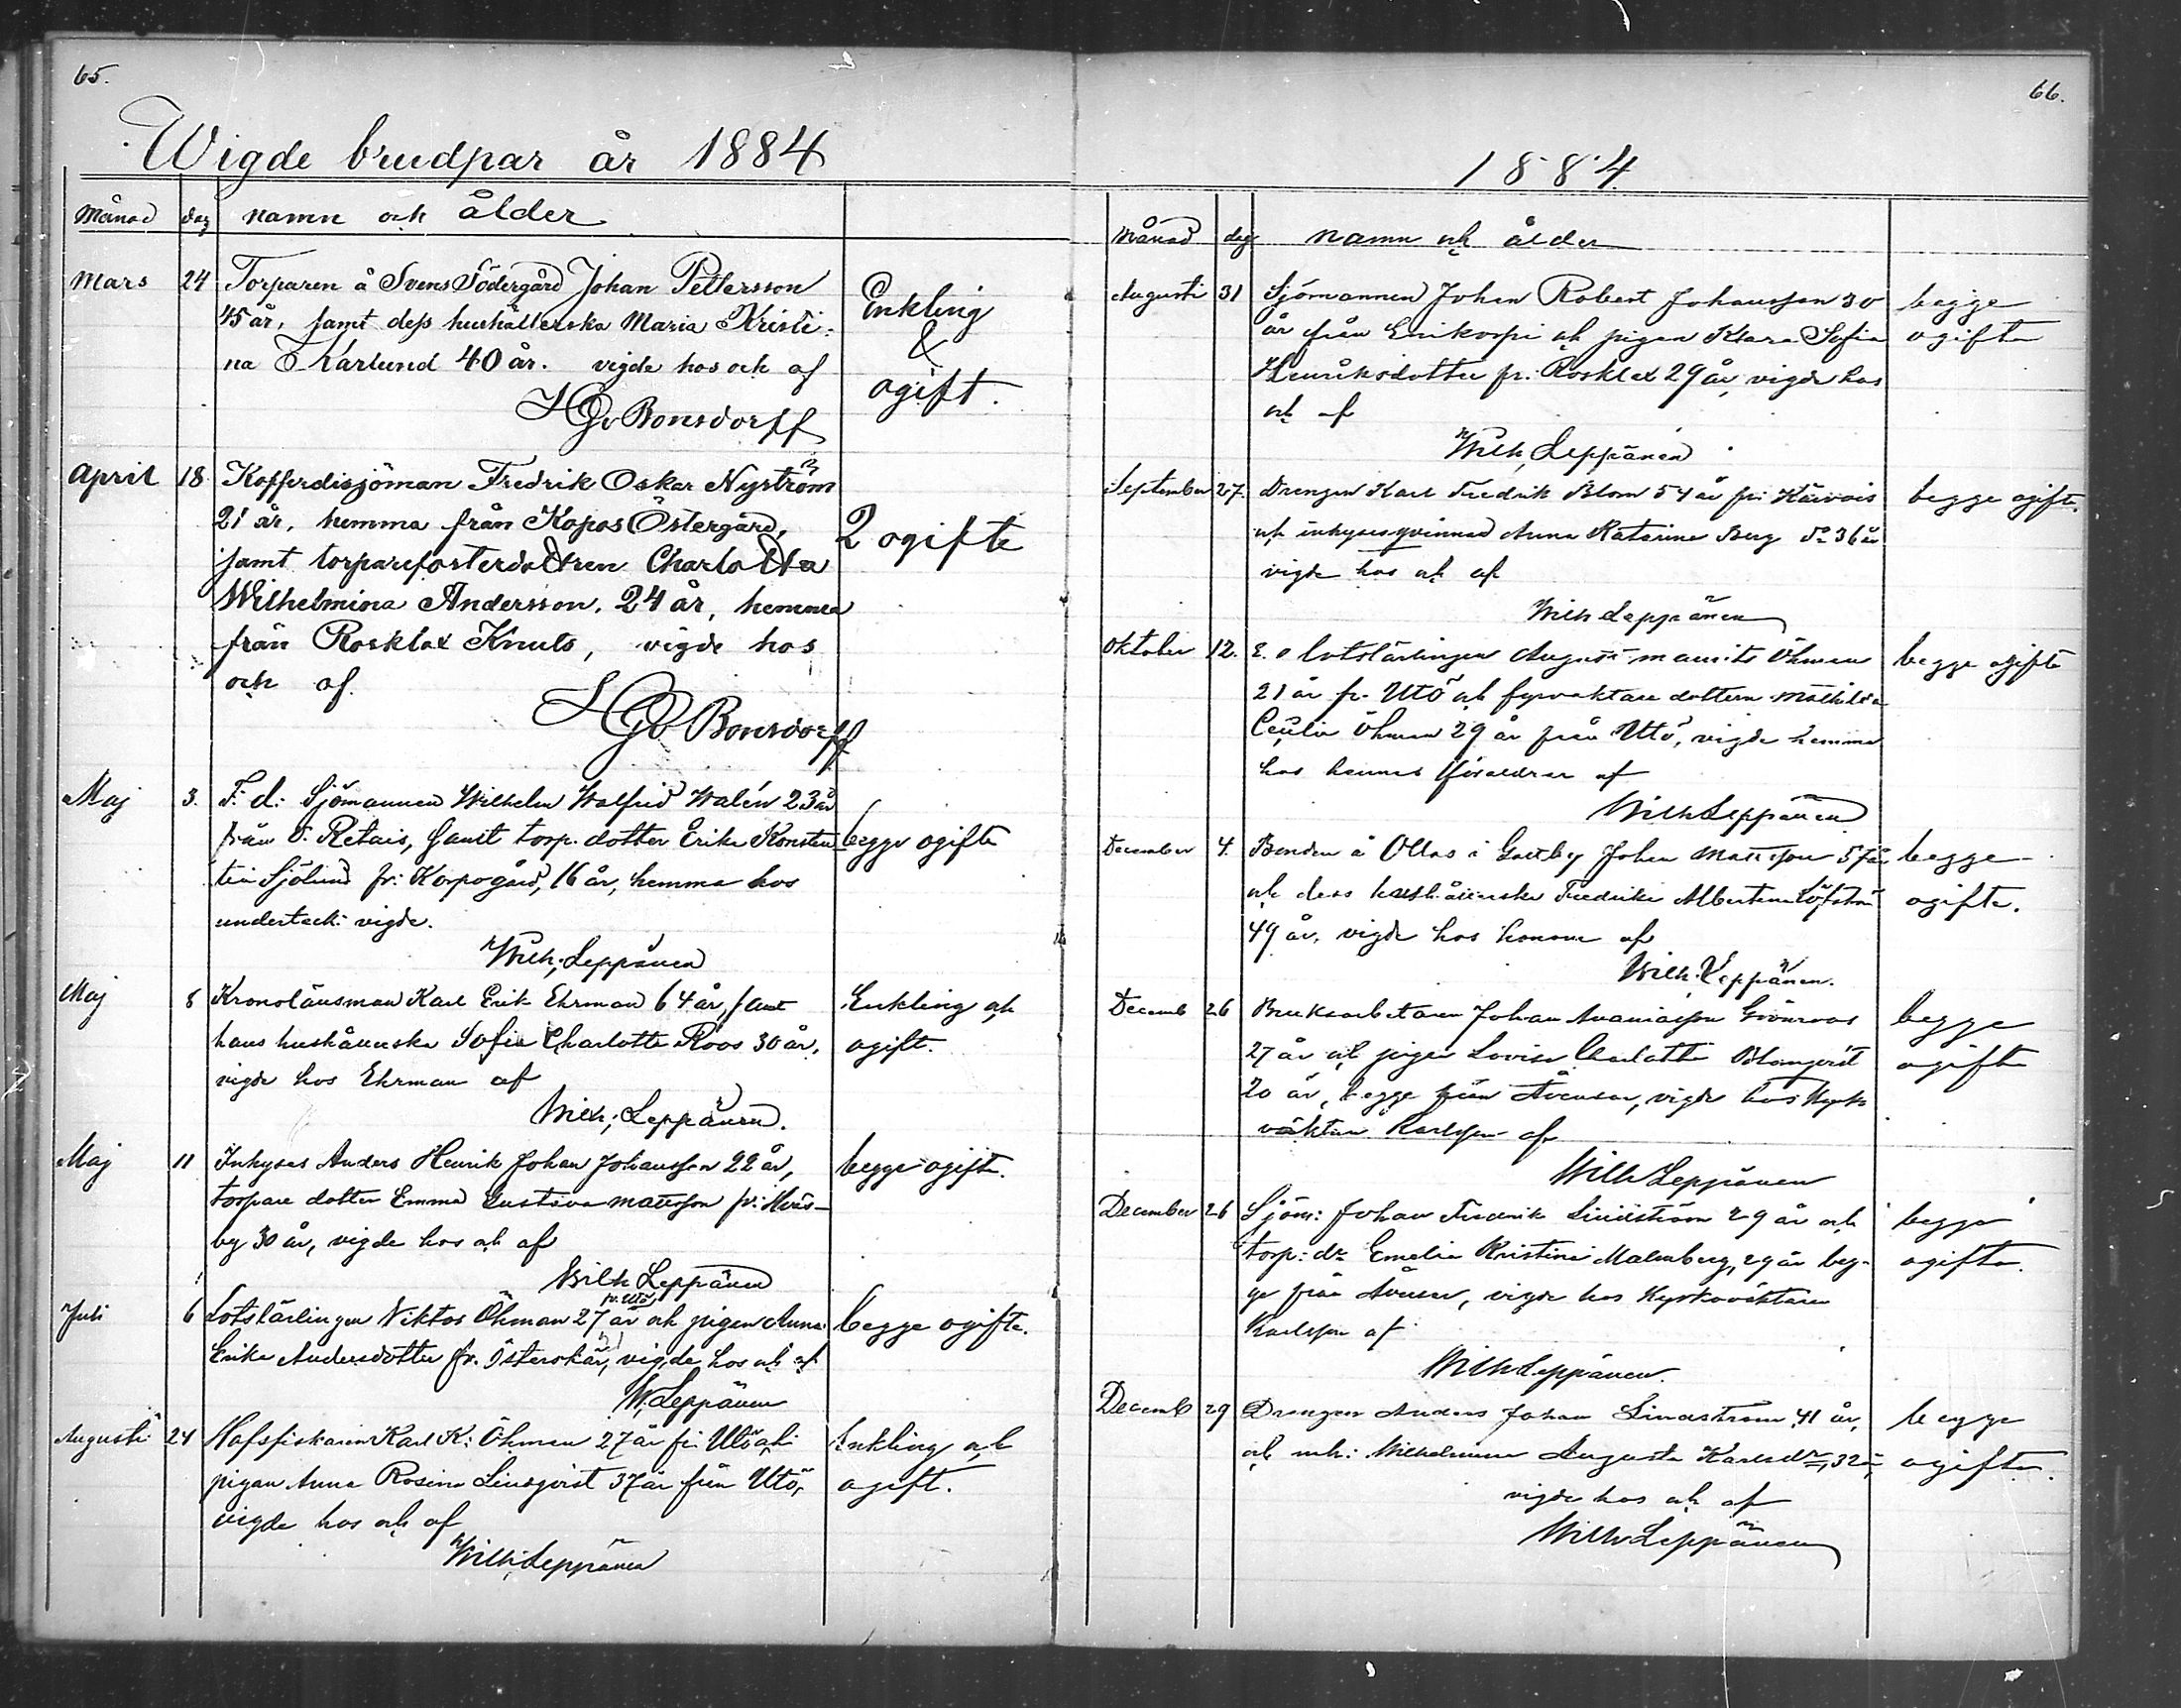 65.
Wigde brudpar år 1884
Månad dag namn och ålder
Mars 24 Torparen å Svens Södergård Johan Pettersson Enkling
45 år, samt dess hushållerska Maria Kristi- &
na Karlund 40 år. vigde hos och af ogift.
HGvBonsdorff
April 18 Kofferdisjöman Fredrik Oskar Nyström
21 år, hemma från Kopos Östergård, 2 ogifte
samt torparefosterdottren Charlotta
Wilhelmina Andersson, 24 år, hemma
från Rosklax Knuts, vigde hos
och af.
HGvBonsdorff
Maj 3. F. d. Sjömannen Wilhelm Walfrid Walén 23 år
från Ö. Retais, samt torp. dotter Erika Konstan- begge ogifte
tia Sjölund fr: Korpogård, 16 år, hemma hos
underteck: vigde.
Wilh; Leppänen
Maj 8 Kronolänsman Karl Erik Ehrman 64 år, samt Enkling och
hans hushållerska Sofia Charlotta Roos 30 år, ogift.
vigde hos Ehrman af
Wilh; Leppänen.
Maj 11 Inhyses Anders Henrik Johan Johansson 22 år, begge ogift.
torpare dotter Emma Gustava Mattsson fr:
by 30 år, vigde hos och af
Wilh Leppänen
fr. Utö
Juli 6 Lotslärlingen Viktor Öhman 27 år och pigan Anna begge ogifte.
Erika Andersdotter fr. Österskär, vigde hos och af
W. Leppänen
Augusti 24 Hafsfiskaren Karl K: Öhman 27 år fr: Utö och Enkling och
pigan Anna Rosina Lindqvist 37 år från Utö, ogift.
vigde hos och af
Wilh; Leppänen
66.
1884.
Månad dag namn och ålder
Augusti 31 Sjömannen Johan Robert Johansson 30 begge
år från och pigan Klara Sofia ogifte
Henriksdotter fr: Rosklax 29 år, vigde hos
och af
Wilh, Leppänen
September 27. Drengen Karl Fredrik Blom 54 år fr: Käivois begge ogift.
och inhysesqvinnan Anna Katarina Berg d:o 36 år
vigde hos och af
Wilh Leppänen
Oktober 12. E. o lotslärlingen August Maurits Öhman begge ogifte
21 år fr. Utö och fyrvaktare dottern Mathilda
Cecilia Öhman 29 år från Utö, vigde hemma
hos hennes föräldrar af
Wilh Leppänen
December 4. Bonden å Ollas i Galtby Johan Mattsson 57 år begge
och dess hushållerska Fredrika Albertina Löfström ogifte.
49 år, vigde hos honom af
Wilh. Leppänen.
Decemb 26 Bruksarbetaren Johan Ananiasson Grönroos begge
27 år och pigan Lovisa Charlotta Blomqvist ogifte
20 år, begge från Åvensor, vigde hos Kyrko
väktar Karlsson af
Wilh Leppänen
December 26 Sjöm: Johan Fredrik Lindström 29 år och begge
torp: dr Emelia Kristina Malmberg, 29 år beg- ogifta.
ge från Åvensor, vigde hos Kyrkoväktaren
Karlsson af
Wilh Leppänen.
Decemb 29 Drengen Anders Johan Lindström 41 år, begge
och inh: Wilhelmina Augusta Karlsdr, 32 år ogifta.
vigde hos och af
Wilh Leppänen